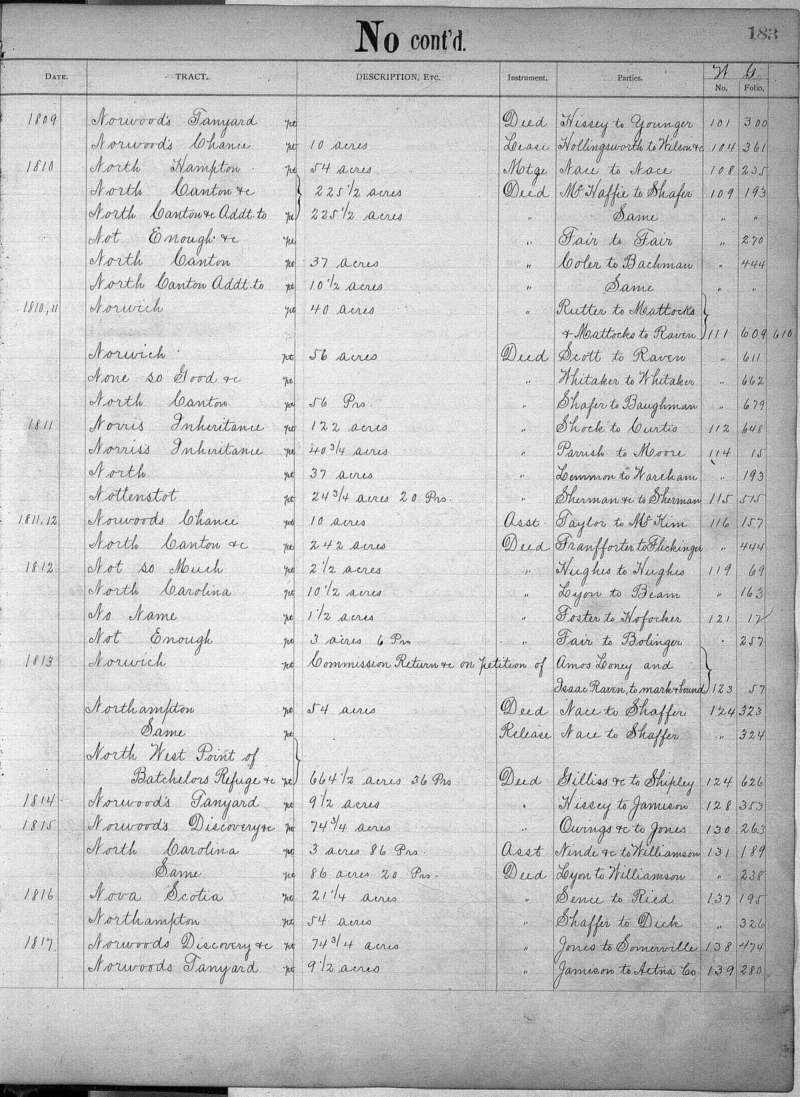 No cont'd.
183
DATE. TRACT. DESCRIPTION, ETC. Instrument. Parties. W G
No. Folio.
1809 Norwood's Tanyard pt Deed Hissey to Younger 101 300
Norwood's Chance pt 10 acres Lease Hollingsworth to Wilson &c 104 361
1810 North Hampton pt 54 acres Mtge Nace to Nace 108 235
North Canton &c pt 225 1/2 acres Deed McHaffie to Shafer 109 193
North Canton &c Addt. to pt 225 1/2 acres " Same " "
Not Enough &c pt " Fair to Fair " 270
North Canton pt 37 acres " Coler to Bachman " 444
North Canton Addt. to pt 10 1/2 acres " Same " "
1810,11 Norwich pt 40 acres " Rutter to Mattocks
& Mattocks to Raven 111 609 610
Norwich pt 56 acres Deed Scott to Raven " 611
None so Good &c pt " Whitaker to Whitaker " 662
North Canton pt 56 Prs. " Shafer to Baughman " 679
1811 Novris Inheritance pt 122 acres " Shock to Curtis 112 648
Norriss Inheritance pt 40 3/4 acres " Parrish to Moore 114 15
North pt 37 acres " Lemmon to Wareham " 193
Nollenstot pt 24 3/4 acres 20 Prs. " Sherman &c to Sherman 115 515
1811,12 Norwoods Chance pt 10 acres Asst. Taylor to McKim 116 157
North Canton &c pt 242 acres Deed Franfforter to Flickinger " 444
1812 Not so Much pt 2 1/2 acres " Hughes to Hughes 119 69
North Carolina pt 10 1/2 acres " Lyon to Beam " 163
No Name pt 1 1/2 acres " Foster to Hofocker 121 12
Not Enough pt 3 acres 6 Prs " Fair to Bolinger " 257
1813 Norwich pt Commission Return &c on petition of Amos Loney and
Isaac Raven, to mark & bound 123 57
Northampton pt 54 acres Deed Nace to Shaffer 124 323
Same pt Release Nace to Shaffer " 324
North West Point of
Batchelors Refuge &c pt 664 1/2 acres 36 Prs. Deed Gilliss &c to Shipley 124 626
1814 Norwood's Tanyard pt 9 1/2 acres " Hissey to Jamison 128 353
1815 Norwood's Discovery &c pt 74 3/4 acres " Owings &c to Jones 130 263
North Carolina pt 3 acres 86 Prs. Asst Ninde &c to Williamson 131 189
Same pt 86 acres 20 Prs. Deed Lyon to Williamson " 238
1816 Nova Scotia pt 21 1/4 acres " Sence to Ried 137 195
Northampton pt 54 acres " Shaffer to Dick " 326
1817 Norwoods Discovery &c pt 74 3/4 acres " Jones to Somerville 138 474
Norwoods Tanyard pt 9 1/2 acres " Jamison to Aetna Co. 139 280